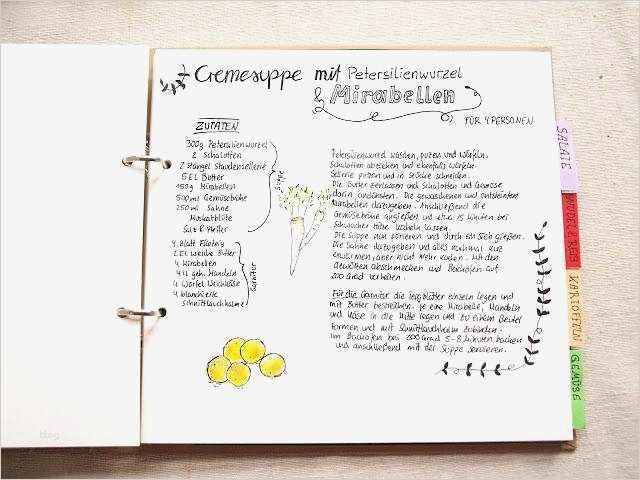 Cremesuppe mit Petersilienwurzel
& Mirabellen
FÜR 4 PERSONEN
ZUTATEN
300g Petersilienwurzel
2 Schalotten
2 Stängel Staudensellerie
5 EL Butter
150g Mirabellen
500ml Gemüsebrühe
250ml Sahne
Muskatblüte
Salz & Pfeffer
Suppe
4 Blatt Filoteig
2 EL weiche Butter
4 Mirabellen
4 geh. Mandeln
4 Würfel Weichkäse
4 blanchierte
Schnittlauchhalme
Garnitur
Petersilienwurzel waschen, putzen und würfeln.
Schalotten abziehen und ebenfalls würfeln.
Sellerie putzen und in Stücke schneiden.
Die Butter zerlassen und Schalotten und Gemüse
darin andünsten. Die gewaschenen und entsteinten
Mirabellen dazugeben. Anschließend die
Gemüsebrühe angießen und etwa 15 Minuten bei
schwacher Hitze köcheln lassen.
Die Suppe dann pürieren und durch ein Sieb gießen.
Die Sahne dazugeben und alles nochmal kurz
erwärmen, aber nicht mehr kochen. Mit den
Gewürzen abschmecken und Backofen auf
200 Grad vorheizen.
Für die Garnitur die Teigblätter einzeln legen und
mit Butter bestreichen. Je eine Mirabelle, Mandeln
und Käse in die Mitte legen und zu einem Beutel
formen und mit Schnittlauchhalm zubinden.
Im Backofen bei 200 Grad 5-8 Minuten backen
und anschließend mit der Suppe servieren.
SALATE
KARTOFFELN
GEMÜSE
blog